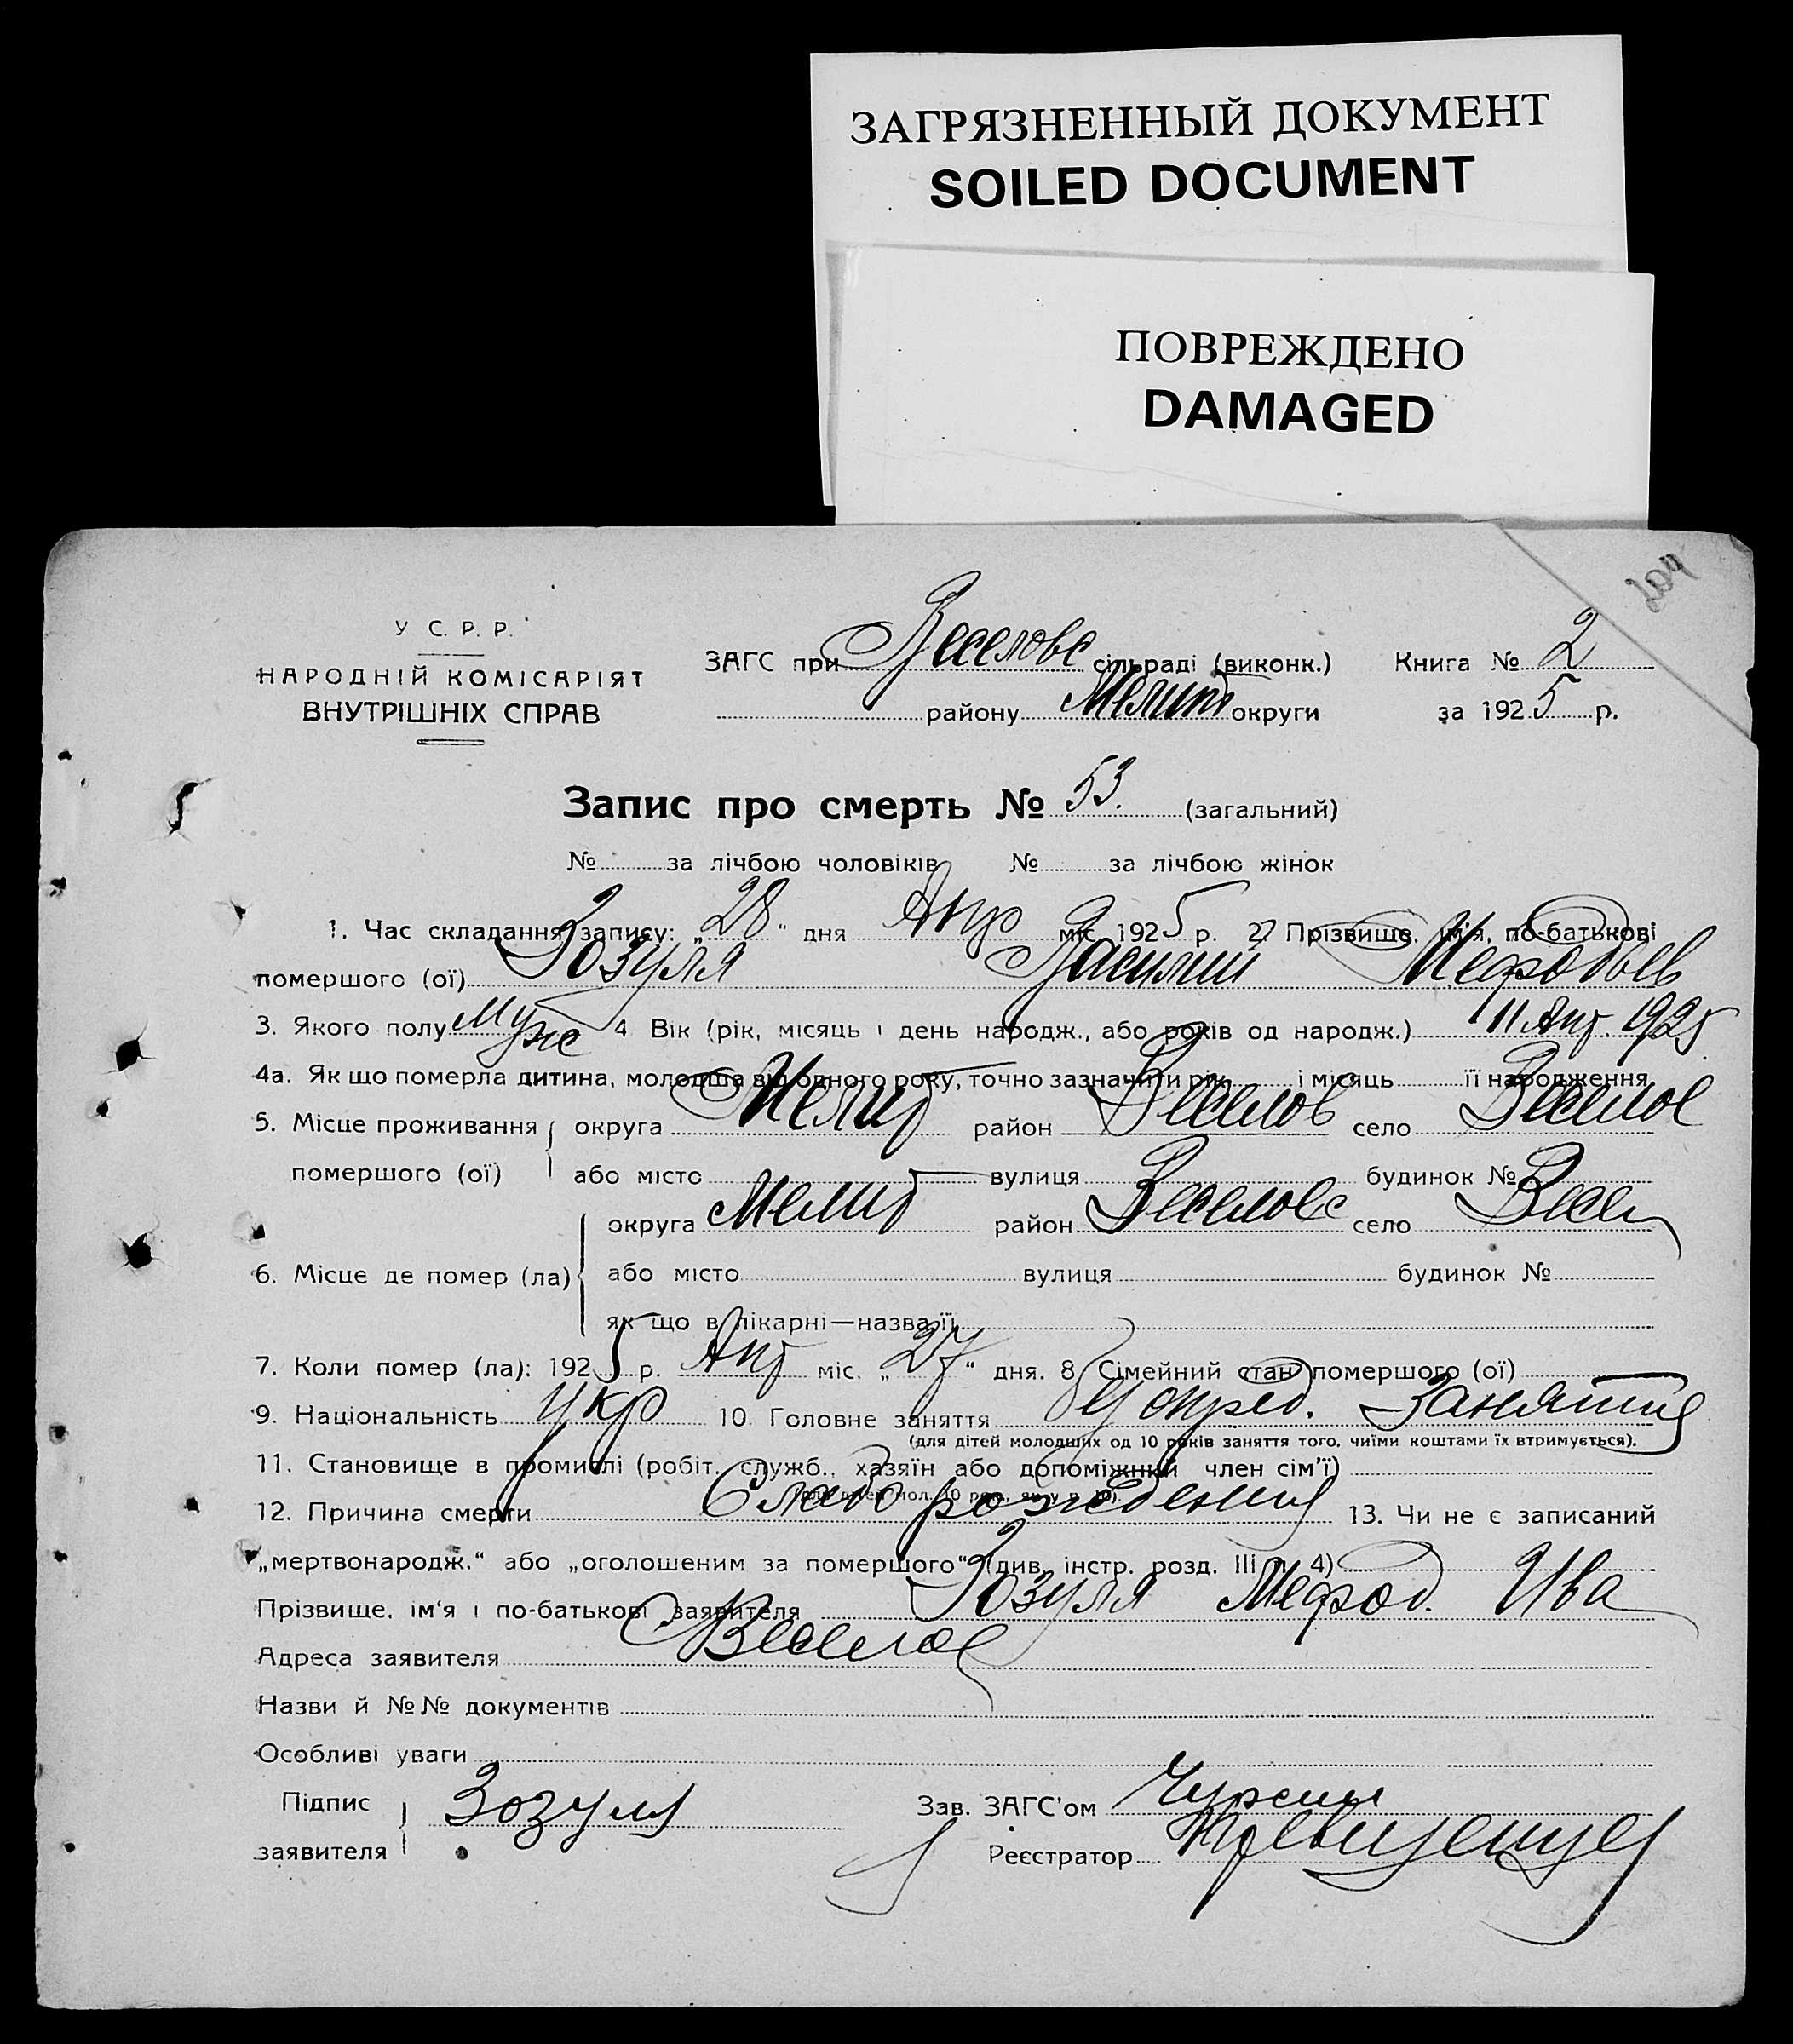 ЗАГРЯЗНЕННЫЙ ДОКУМЕНТ
SOILED DOCUMENT
ПОВРЕЖДЕНО
DAMAGED
204
У С. Р. Р.
НАРОДНІЙ КОМІСАРІЯТ
ВНУТРІШНІХ СПРАВ
ЗАГС при Веселовс сільраді (виконк.) Книга № 2
району Мелит округи за 1925 р.
Запис про смерть № 53. (загальний)
№ за лічбою чоловіків № за лічбою жінок
1. Час складання запису: „28" дня Апр міс. 1925 р. 2. Прізвище, ім'я, по-батькові
помершого (ої) Зозуля Василий Мефодьев
3. Якого полу Муж 4 Вік (рік, місяць і день народж., або років од народж.) 11 Апр. 1925
4а. Як що померла дитина, молодша від одного року, точно зазначити рік і місяць її народження
5. Місце проживання округа Мелит район Веселов село Веселое
помершого (ої) або місто вулиця будинок №
округа Мелит район Веселовс село Весел
6. Місце де помер (ла) або місто вулиця будинок №
як що в лікарні—назва її
7. Коли помер (ла): 1925 р. Апр міс. „27" дня. 8 Сімейний стан помершого (ої)
9. Національність Укр 10. Головне заняття Занятия
(для дітей молодших од 10 років заняття того, чиїми коштами їх втримується).
11. Становище в промислі (робіт. служб., хазяїн або допоміжний член сім'ї)
12. Причина смерти Слабо рождения 13. Чи не є записаний
„мертвонародж." або „оголошеним за помершого" (див. інстр. розд. III п. 4)
Прізвище, ім'я і по-батькові заявителя Зозуля Мефод. Ива
Адреса заявителя Веселое
Назви й №№ документів
Особливі уваги
Підпис заявителя Зозуля Зав. ЗАГС'ом
Реєстратор